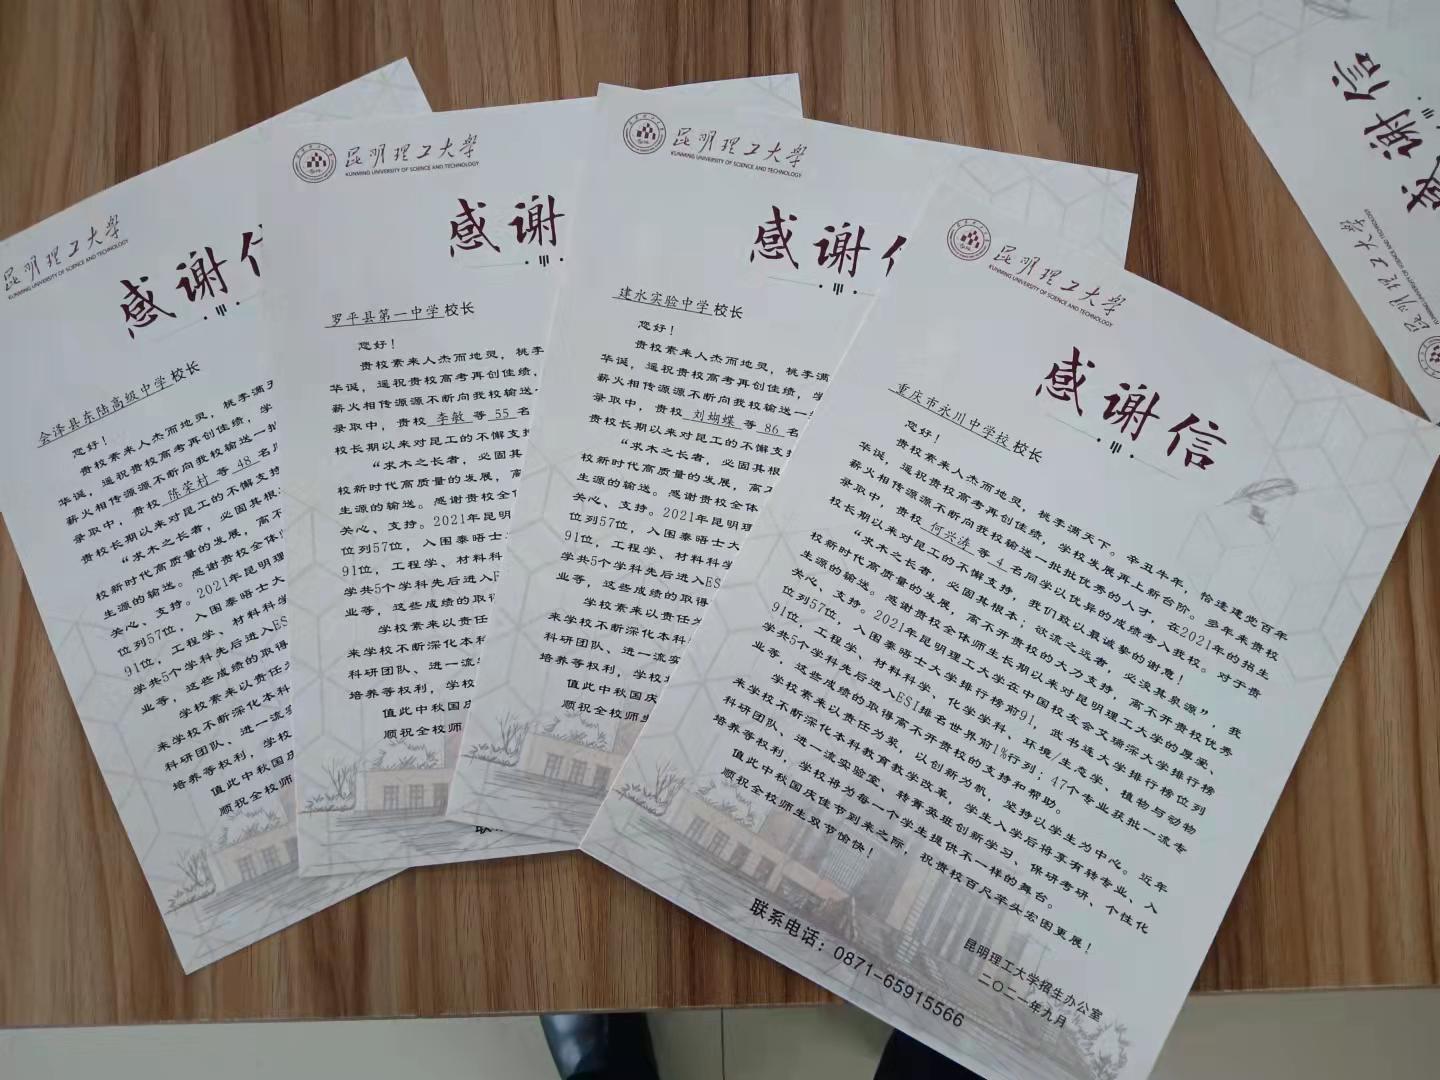 昆明理工大学
KUNMING UNIVERSITY OF SCIENCE AND TECHNOLOGY
感谢信
会泽县东陆高级中学校长
您好！
贵校素来人杰而地灵，桃李满天
华诞，遥祝贵校高考再创佳绩，学
薪火相传源源不断向我校输送一批
录取中，贵校 陈荣村 等 48 名同
贵校长期以来对昆工的不懈支持
“求木之长者，必固其根
校新时代高质量的发展，离不
生源的输送。感谢贵校全体
关心、支持。2021年昆明理
位列57位，入围泰晤士大
91位，工程学、材料科学
学共5个学科先后进入ES
业等，这些成绩的取得
学校素来以责任
来学校不断深化本科
科研团队、进一流
培养等权利，学校
值此中秋国庆
顺祝全校师
昆明理工大学
KUNMING UNIVERSITY OF SCIENCE AND TECHNOLOGY
感谢
罗平县第一中学校长
您好！
贵校素来人杰而地灵，桃李
华诞，遥祝贵校高考再创佳绩，
薪火相传源源不断向我校输送一
录取中，贵校 李敏 等 55 名
校长期以来对昆工的不懈支持
“求木之长者，必固其根
校新时代高质量的发展，离
生源的输送。感谢贵校全体
关心、支持。2021年昆明
位列57位，入围泰晤士大
91位，工程学、材料科
学共5个学科先后进入E
业等，这些成绩的取得
学校素来以责任
来学校不断深化本
科研团队、进一流
培养等权利，学校
值此中秋国庆
顺祝全校师
联
昆明理工大学
KUNMING UNIVERSITY OF SCIENCE AND TECHNOLOGY
感谢信
建水实验中学校长
您好！
贵校素来人杰而地灵，桃李满
华诞，遥祝贵校高考再创佳绩，学
薪火相传源源不断向我校输送一
录取中，贵校 刘蝴蝶 等 86 名
贵校长期以来对昆工的不懈支持
“求木之长者，必固其根
校新时代高质量的发展，离不
生源的输送。感谢贵校全体
关心、支持。2021年昆明理
位列57位，入围泰晤士大
91位，工程学、材料科学
学共5个学科先后进入ES
业等，这些成绩的取得
学校素来以责任为
来学校不断深化本科
科研团队、进一流实
培养等权利，学校
值此中秋国庆
顺祝全校师生
昆明理工大学
KUNMING UNIVERSITY OF SCIENCE AND TECHNOLOGY
感谢信
重庆市永川中学校校长
您好！
贵校素来人杰而地灵，桃李满天下。辛丑牛年，恰逢建党百年
华诞，遥祝贵校高考再创佳绩，学校发展再上新台阶。多年来贵校
薪火相传源源不断向我校输送一批批优秀的人才，在2021年的招生
录取中，贵校 何兴涛 等 4 名同学以优异的成绩考入我校。对于贵
校长期以来对昆工的不懈支持，我们致以最诚挚的谢意！
“求木之长者，必固其根本；欲流之远者，必浚其泉源”，我
校新时代高质量的发展，离不开贵校的大力支持，离不开贵校优秀
生源的输送。感谢贵校全体师生长期以来对昆明理工大学的厚爱、
关心、支持。2021年昆明理工大学在中国校友会艾瑞深大学排行榜
位列57位，入围泰晤士大学排行榜前91，武书连大学排行榜位列
91位，工程学、材料科学、化学学科、环境/生态学、植物与动物
学共5个学科先后进入ESI排名世界前1%行列；47个专业获批一流专
业等，这些成绩的取得离不开贵校的支持和帮助。
学校素来以责任为桨，以创新为帆，坚持以学生为中心。近年
来学校不断深化本科教育教学改革，学生入学后将享有转专业、入
科研团队、进一流实验室、转菁英班创新学习、保研考研、个性化
培养等权利，学校将为每一个学生提供不一样的舞台。
值此中秋国庆佳节到来之际，祝贵校百尺竿头宏图更展！
顺祝全校师生双节愉快！
昆明理工大学招生办公室
二〇二一年九月
联系电话：0871-65915566
感谢信
昆明理工大学
KUNMING UNIVERSITY OF SCIENCE AND TECHNOLOGY